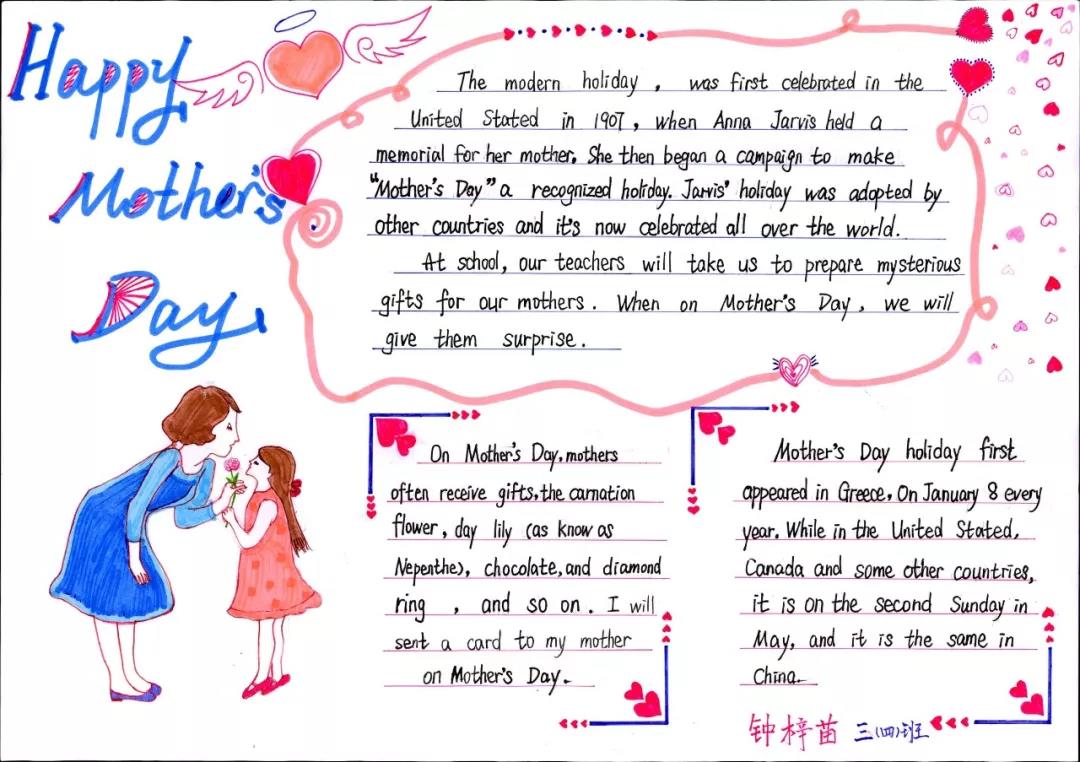 Happy
Mother's
Day
The modern holiday , was first celebrated in the
United Stated in 1907, when Anna Jarvis held a
memorial for her mother. She then began a campaign to make
"Mother's Day" a recognized holiday. Jarvis' holiday was adopted by
other countries and it's now celebrated all over the world.
At school, our teachers will take us to prepare mysterious
gifts for our mothers. When on Mother's Day, we will
give them surprise.
On Mother's Day, mothers
often receive gifts, the carnation
flower, day lily (as know as
Nepenthe), chocolate, and diamond
ring , and so on. I will
sent a card to my mother
on Mother's Day.
Mother's Day holiday first
appeared in Greece, On January 8 every
year. While in the United Stated,
Canada and some other countries,
it is on the second Sunday in
May, and it is the same in
China.
钟梓苗 三(四)班